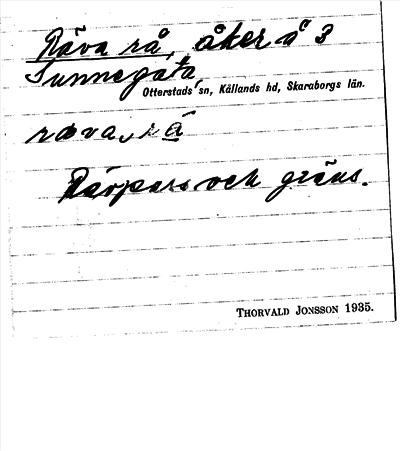 Räva rå, åker å 3
Sunnegåta,
Otterstads sn, Kållands hd, Skaraborgs län.
och gräns.
THORVALD JONSSON 1935.